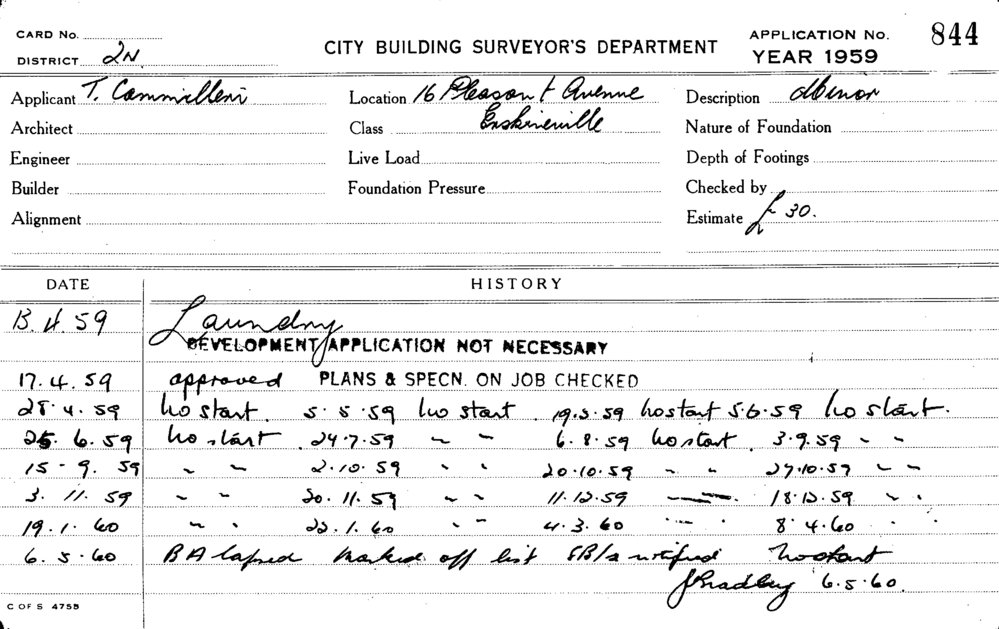 CARD No.
DISTRICT 2N
CITY BUILDING SURVEYOR'S DEPARTMENT
APPLICATION No. 844
YEAR 1959
Applicant T. Cammilleri Location 16 Pleasant Avenue Description Minor
Architect Class Erskineville Nature of Foundation
Engineer Live Load Depth of Footings
Builder Foundation Pressure Checked by
Alignment Estimate £30.
DATE HISTORY
13. 4. 59 Laundry
DEVELOPMENT APPLICATION NOT NECESSARY
17. 4. 59 approved PLANS & SPECN. ON JOB CHECKED
28. 4. 59 No start. 5. 5. 59 No start 19. 5. 59 No start 5. 6. 59 No start.
25. 6. 59 No start 24. 7. 59 " " 6. 8. 59 No start 3. 9. 59 " "
15 - 9. 59 " " 2. 10. 59 " " 20. 10. 59 " " 27. 10. 59 " "
3. 11. 59 " " 20. 11. 59 " " 11. 12. 59 " " 18. 12. 59 " "
19. 1. 60 " " 22. 1. 60 " " 4. 3. 60 " " 8. 4. 60 " "
6. 5. 60 BA lapsed Marked off list notified No start
J Bradley 6. 5. 60.
C OF S 4755